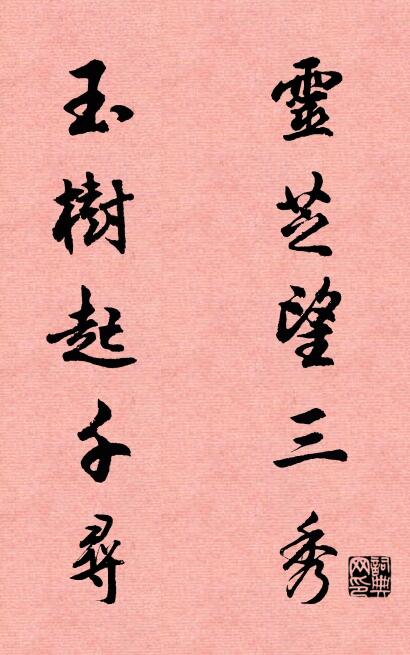 靈芝望三秀
玉樹起千尋
詞典网印